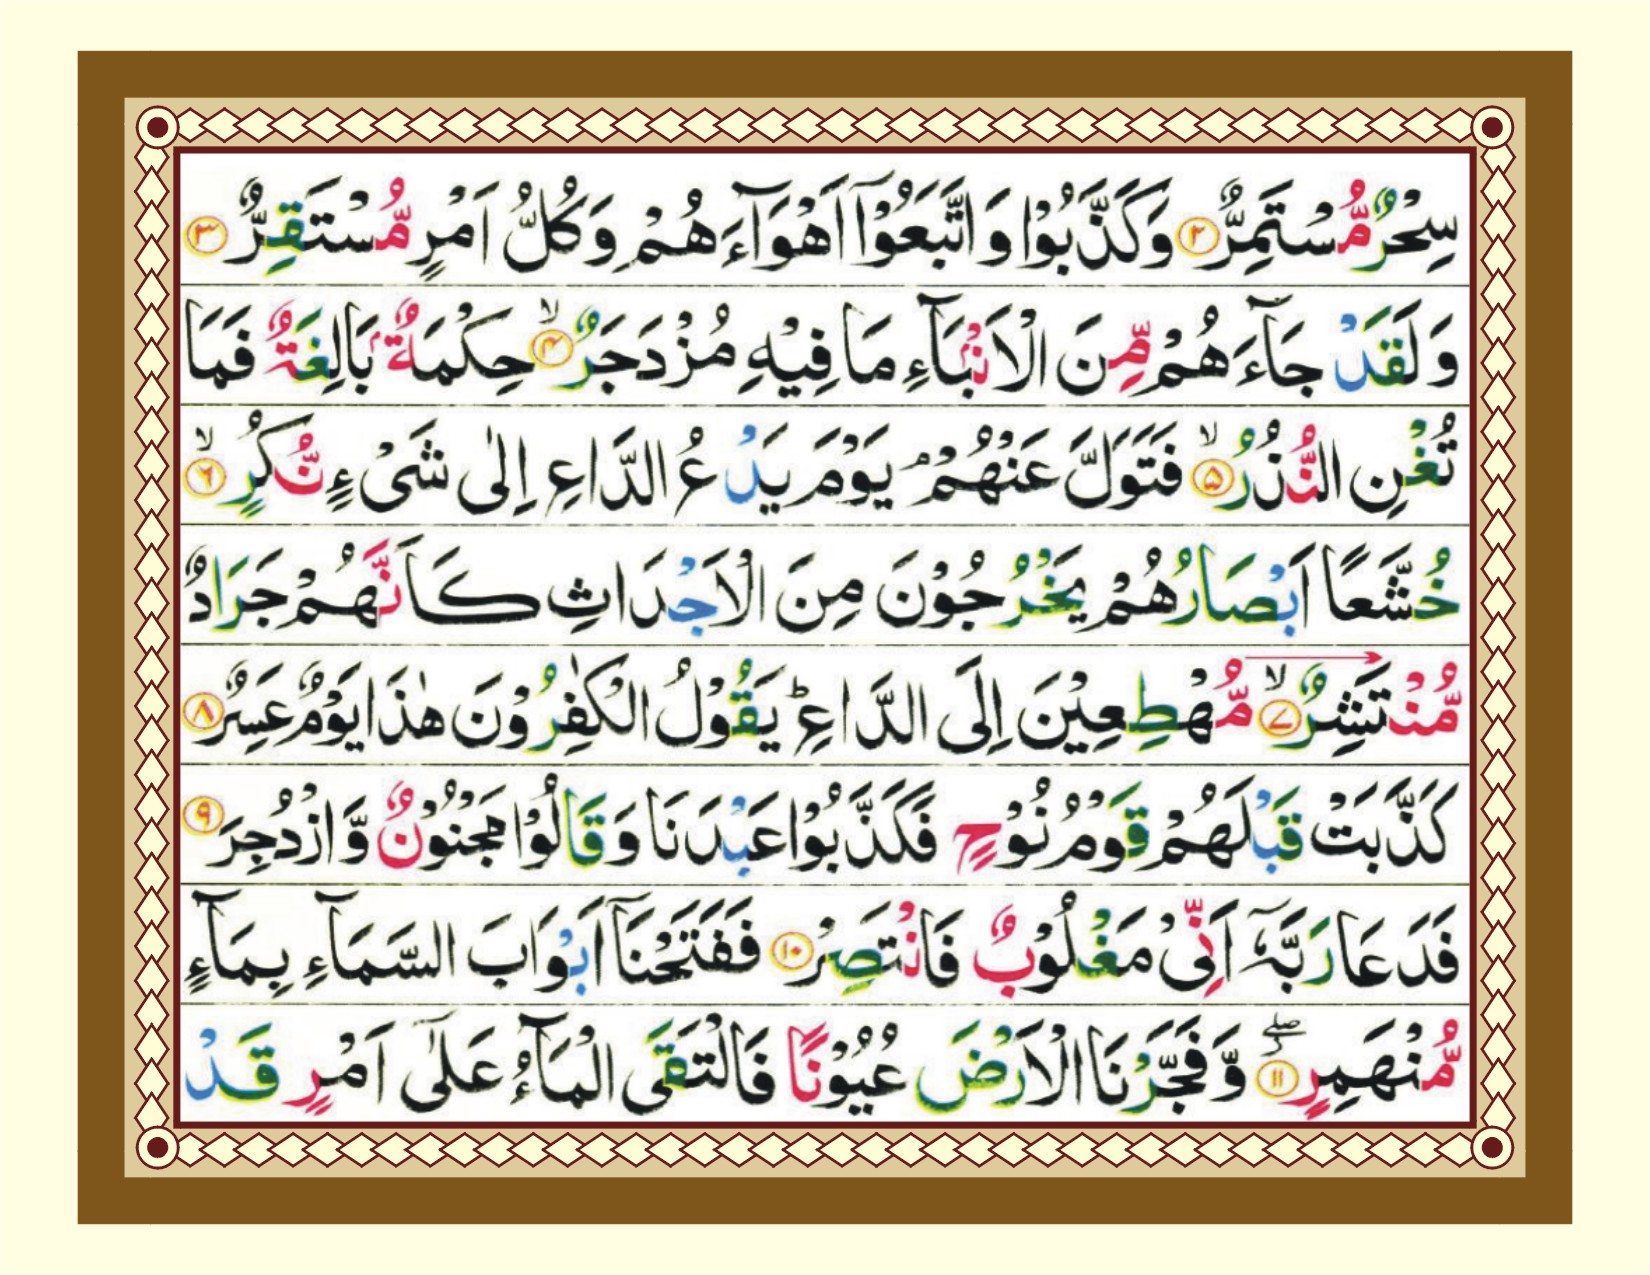 سِحْرٌ مُّسْتَمِرٌّ ۝۲ وَكَذَّبُوْا وَاتَّبَعُوْٓا اَهْوَآءَهُمْ وَكُلُّ اَمْرٍ مُّسْتَقِرٌّ ۝۳
وَلَقَدْ جَآءَهُمْ مِّنَ الْاَنْۢبَآءِ مَا فِيْهِ مُزْدَجَرٌ ۝۴ۙ حِكْمَةٌۢ بَالِغَةٌ فَمَا
تُغْنِ النُّذُرُ ۝۵ۙ فَتَوَلَّ عَنْهُمْ ۘ يَوْمَ يَدْعُ الدَّاعِ اِلٰى شَىْءٍ نُّكُرٍ ۝۶ۙ
خُشَّعًا اَبْصَارُهُمْ يَخْرُجُوْنَ مِنَ الْاَجْدَاثِ كَاَنَّهُمْ جَرَادٌ
مُّنْتَشِرٌ ۝۷ۙ مُّهْطِعِيْنَ اِلَى الدَّاعِ ؕ يَقُوْلُ الْكٰفِرُوْنَ هٰذَا يَوْمٌ عَسِرٌ ۝۸
كَذَّبَتْ قَبْلَهُمْ قَوْمُ نُوْحٍ فَكَذَّبُوْا عَبْدَنَا وَقَالُوْا مَجْنُوْنٌ وَّازْدُجِرَ ۝۹
فَدَعَا رَبَّهٗٓ اَنِّىْ مَغْلُوْبٌ فَانْتَصِرْ ۝۱۰ فَفَتَحْنَآ اَبْوَابَ السَّمَآءِ بِمَآءٍ
مُّنْهَمِرٍ ۝۱۱ۖ وَّفَجَّرْنَا الْاَرْضَ عُيُوْنًا فَالْتَقَى الْمَآءُ عَلٰٓى اَمْرٍ قَدْ